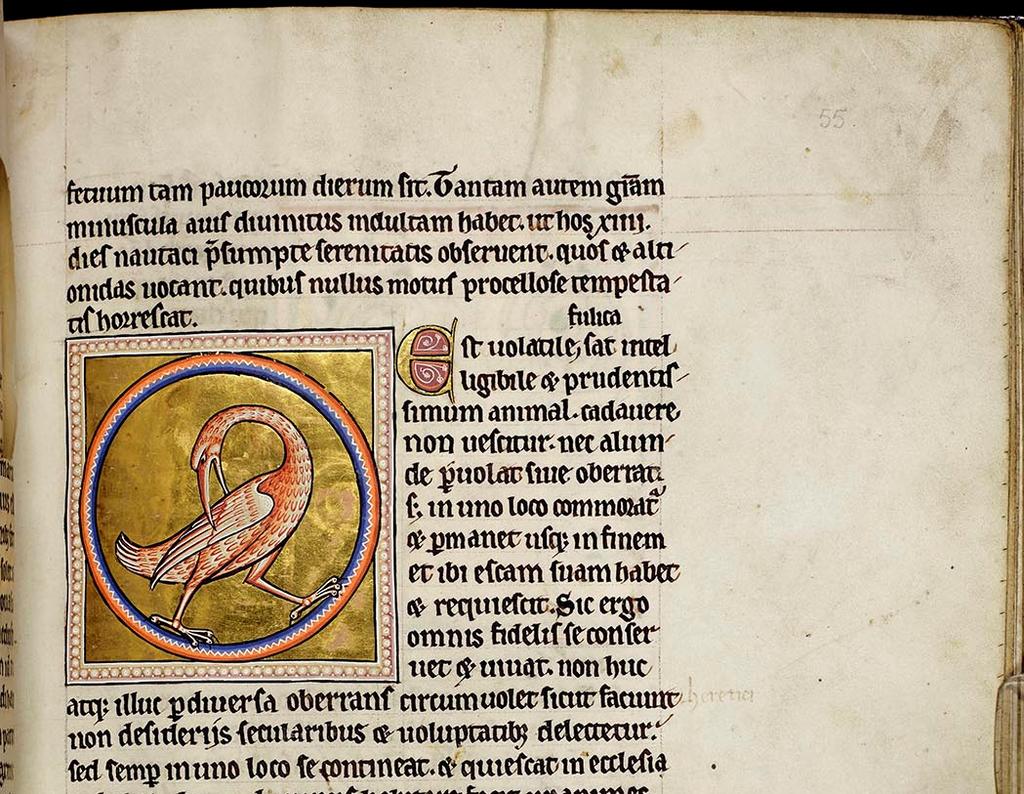 55.
fetuum tam paucorum dierum sit. Tantam autem gr̄am
minuscula auis diuinitus indultam habet. ut hos xiiii.
dies nautaci p̄sumpte serenitatis obseruent. quos ⁊ alti-
onidas uocant. quibus nullus motus procellose tempesta-
tis horrescat.
fulica
Est uolatile, sat intel
ligibile ⁊ prudentis-
simum animal. cadauere
non uescitur. nec aliun-
de p̄uolat siue oberrat.
s; in uno loco commorat᷑
⁊ ꝑmanet usq; in finem
et ibi escam suam habet
⁊ requiescit. Sic ergo
omnis fidelis se conser-
uet ⁊ uiuat. non huc
atq; illuc ꝑ diuersa oberrans circumuolet sicut faciunt heretici
non desiderijs secularibus ⁊ uoluptatibꝫ delectetur.
sed semꝑ in uno loco se contineat. ⁊ quiescat in ecclesia